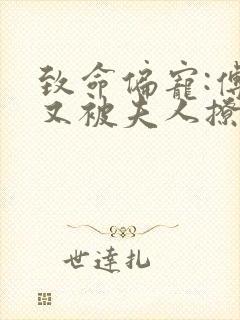 致命偏宠:傅
又被夫人撩
世達扎